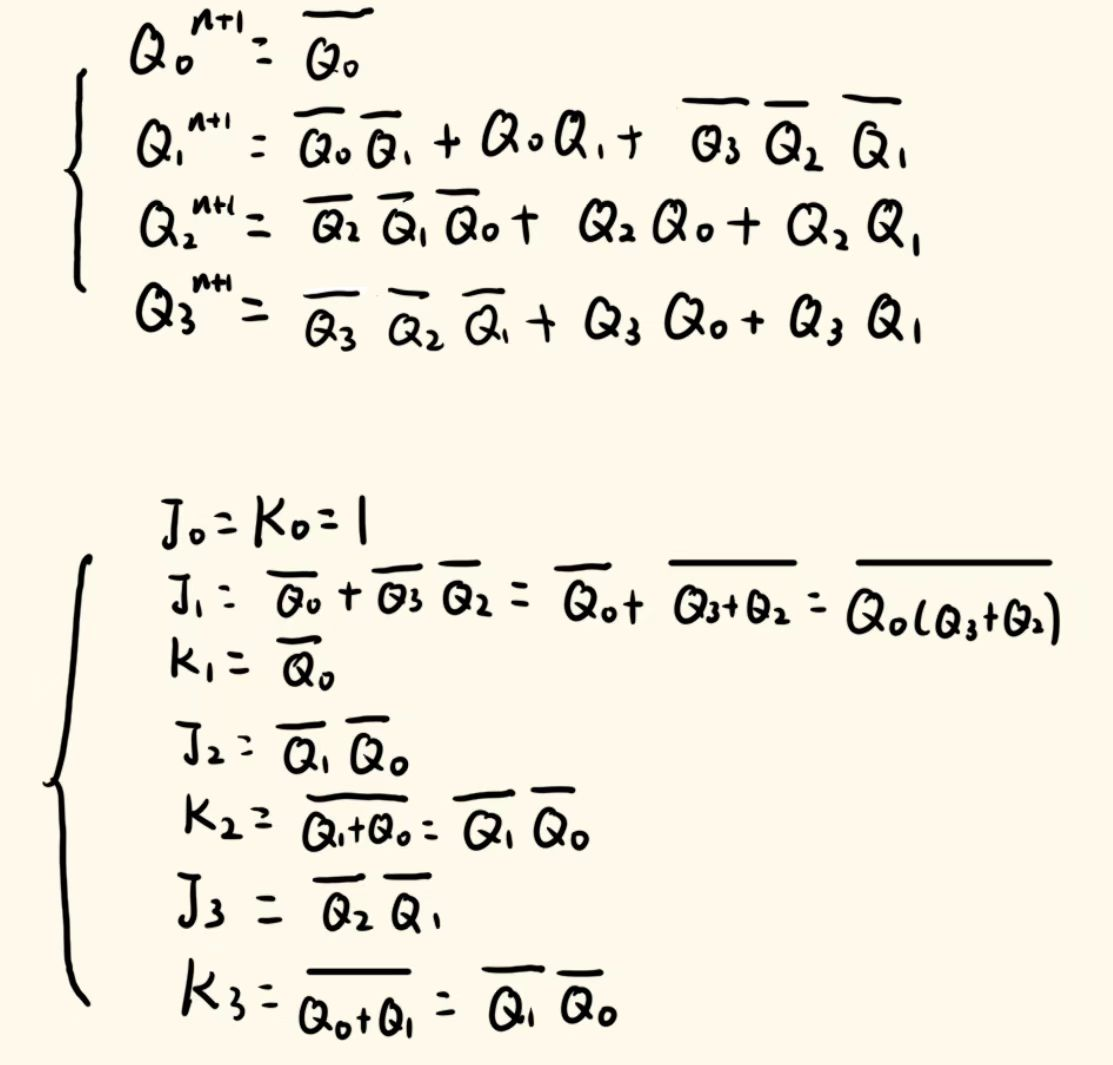 Q₀ⁿ⁺¹ = Q̅₀
Q₁ⁿ⁺¹ = Q̅₀ Q̅₁ + Q₀Q₁ + Q̅₃ Q̅₂ Q̅₁
Q₂ⁿ⁺¹ = Q̅₂ Q̅₁ Q̅₀ + Q₂ Q₀ + Q₂ Q₁
Q₃ⁿ⁺¹ = Q̅₃ Q̅₂ Q̅₁ + Q₃ Q₀ + Q₃ Q₁
J₀ = K₀ = 1
J₁ = Q̅₀ + Q̅₃ Q̅₂ = Q̅₀ + \overline{Q₃+Q₂} = \overline{Q₀(Q₃+Q₂)}
K₁ = Q̅₀
J₂ = Q̅₁ Q̅₀
K₂ = \overline{Q₁+Q₀} = Q̅₁ Q̅₀
J₃ = Q̅₂ Q̅₁
K₃ = \overline{Q₀+Q₁} = Q̅₁ Q̅₀